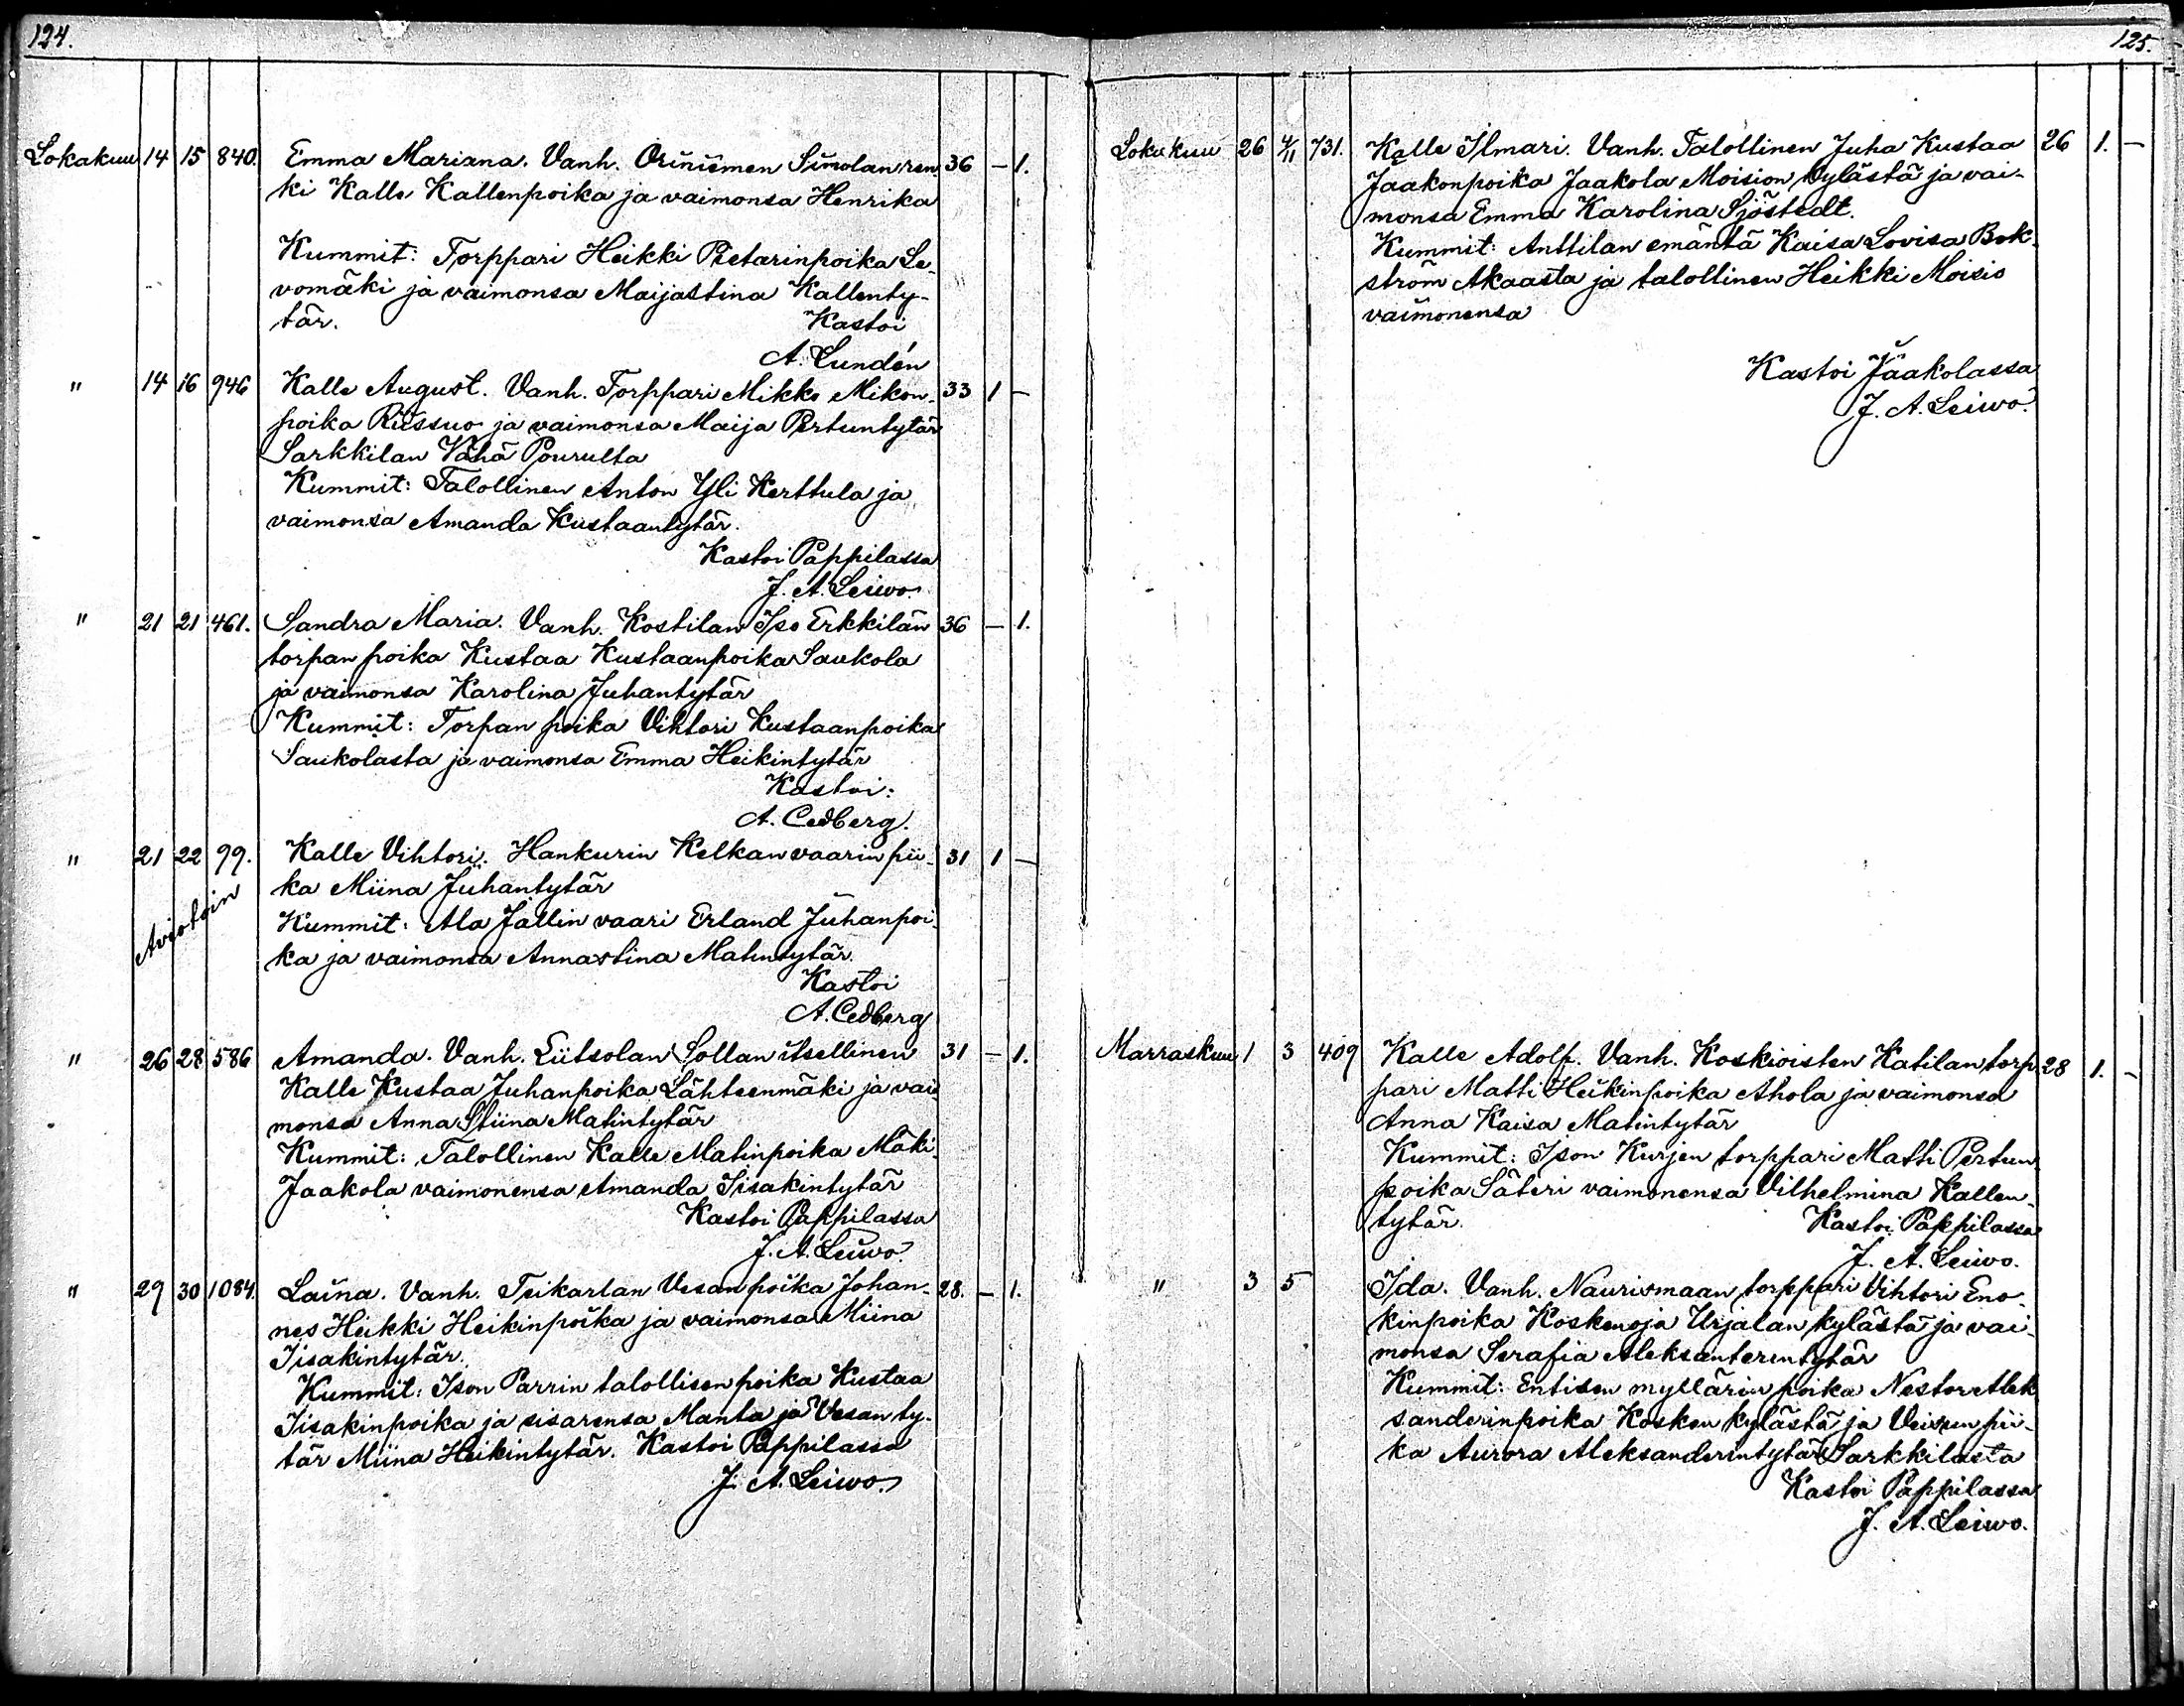 124.
Lokakuu 14 15 840. Emma Mariana. Vanh. Oriniemen Simolan ren- 36 — 1.
ki Kalle Kallenpoika ja vaimonsa Henrika
Kummit: Torppari Heikki Pietarinpoika Le-
vomäki ja vaimonsa Maijastina Kallenty-
tär. Kastoi
A. Lundén
" 14 16 946 Kalle August. Vanh. Torppari Mikko Mikon- 33 1 —
poika Riissuo ja vaimonsa Maija Pertuntytär
Sarkkilan Vähä Pourulta
Kummit: Talollinen Anton Yli Kerttula ja
vaimonsa Amanda Kustaantytär.
Kastoi Pappilassa
J. A. Leiwo.
" 21 21 461. Sandra Maria. Vanh. Kostilan Iso Erkkilän 36 — 1.
torpan poika Kustaa Kustaanpoika Saukola
ja vaimonsa Karolina Juhantytär
Kummit: Torpan poika Vihtori Kustaanpoika
Saukolasta ja vaimonsa Emma Heikintytär
Kastoi:
A. Cedberg.
" 21 22 99. Kalle Vihtori. Hankurin Kelkan vaarin pii- 31 1 —
Aviotoin
ka Miina Juhantytär
Kummit: Ala Jallin vaari Erland Juhanpoi-
ka ja vaimonsa Annastina Matintytär.
Kastoi
A. Cedberg
" 26 28 586 Amanda. Vanh. Liitsolan Sollan itsellinen 31 — 1.
Kalle Kustaa Juhanpoika Lähteenmäki ja vai-
monsa Anna Stiina Matintytär
Kummit: Talollinen Kalle Matinpoika Mäki-
Jaakola vaimonensa Amanda Iisakintytär
Kastoi Pappilassa
J. A. Leiwo.
" 29 30 1084. Laina. Vanh. Teikarlan Vesan poika Johan- 28. — 1.
nes Heikki Heikinpoika ja vaimonsa Miina
Iisakintytär.
Kummit: Ison Parrin talollisen poika Kustaa
Iisakinpoika ja sisarensa Manta ja Vesan ty-
tär Miina Heikintytär. Kastoi Pappilassa
J. A. Leiwo.
125.
Lokakuu 26 4/11 731. Kalle Ilmari. Vanh. Talollinen Juha Kustaa 26 1. —
Jaakonpoika Jaakola Moision kylästä ja vai-
monsa Emma Karolina Sjöstedt.
Kummit: Anttilan emäntä Kaisa Lovisa Bok-
ström Akaasta ja talollinen Heikki Moisio
vaimonensa
Kastoi Jaakolassa
J. A. Leiwo.
Marraskuu 1 3 409 Kalle Adolf. Vanh. Koskioisten Katilan torp- 28 1. —
pari Matti Heikinpoika Ahola ja vaimonsa
Anna Kaisa Matintytär
Kummit: Ison Kurjen torppari Matti Pertun
poika Säteri vaimonensa Vilhelmina Kallen-
tytär. Kastoi Pappilassa
J. A. Leiwo.
" 3 5 Ida. Vanh. Naurismaan torppari Vihtori Eno-
kinpoika Koskenoja Urjalan kylästä ja vai-
monsa Serafia Aleksanterintytär
Kummit: Entisen myllärin poika Nestor Alek
sanderinpoika Kosken kylästä ja pii-
ka Aurora Aleksanderintytär Sarkkilasta
Kastoi Pappilassa
J. A. Leiwo.